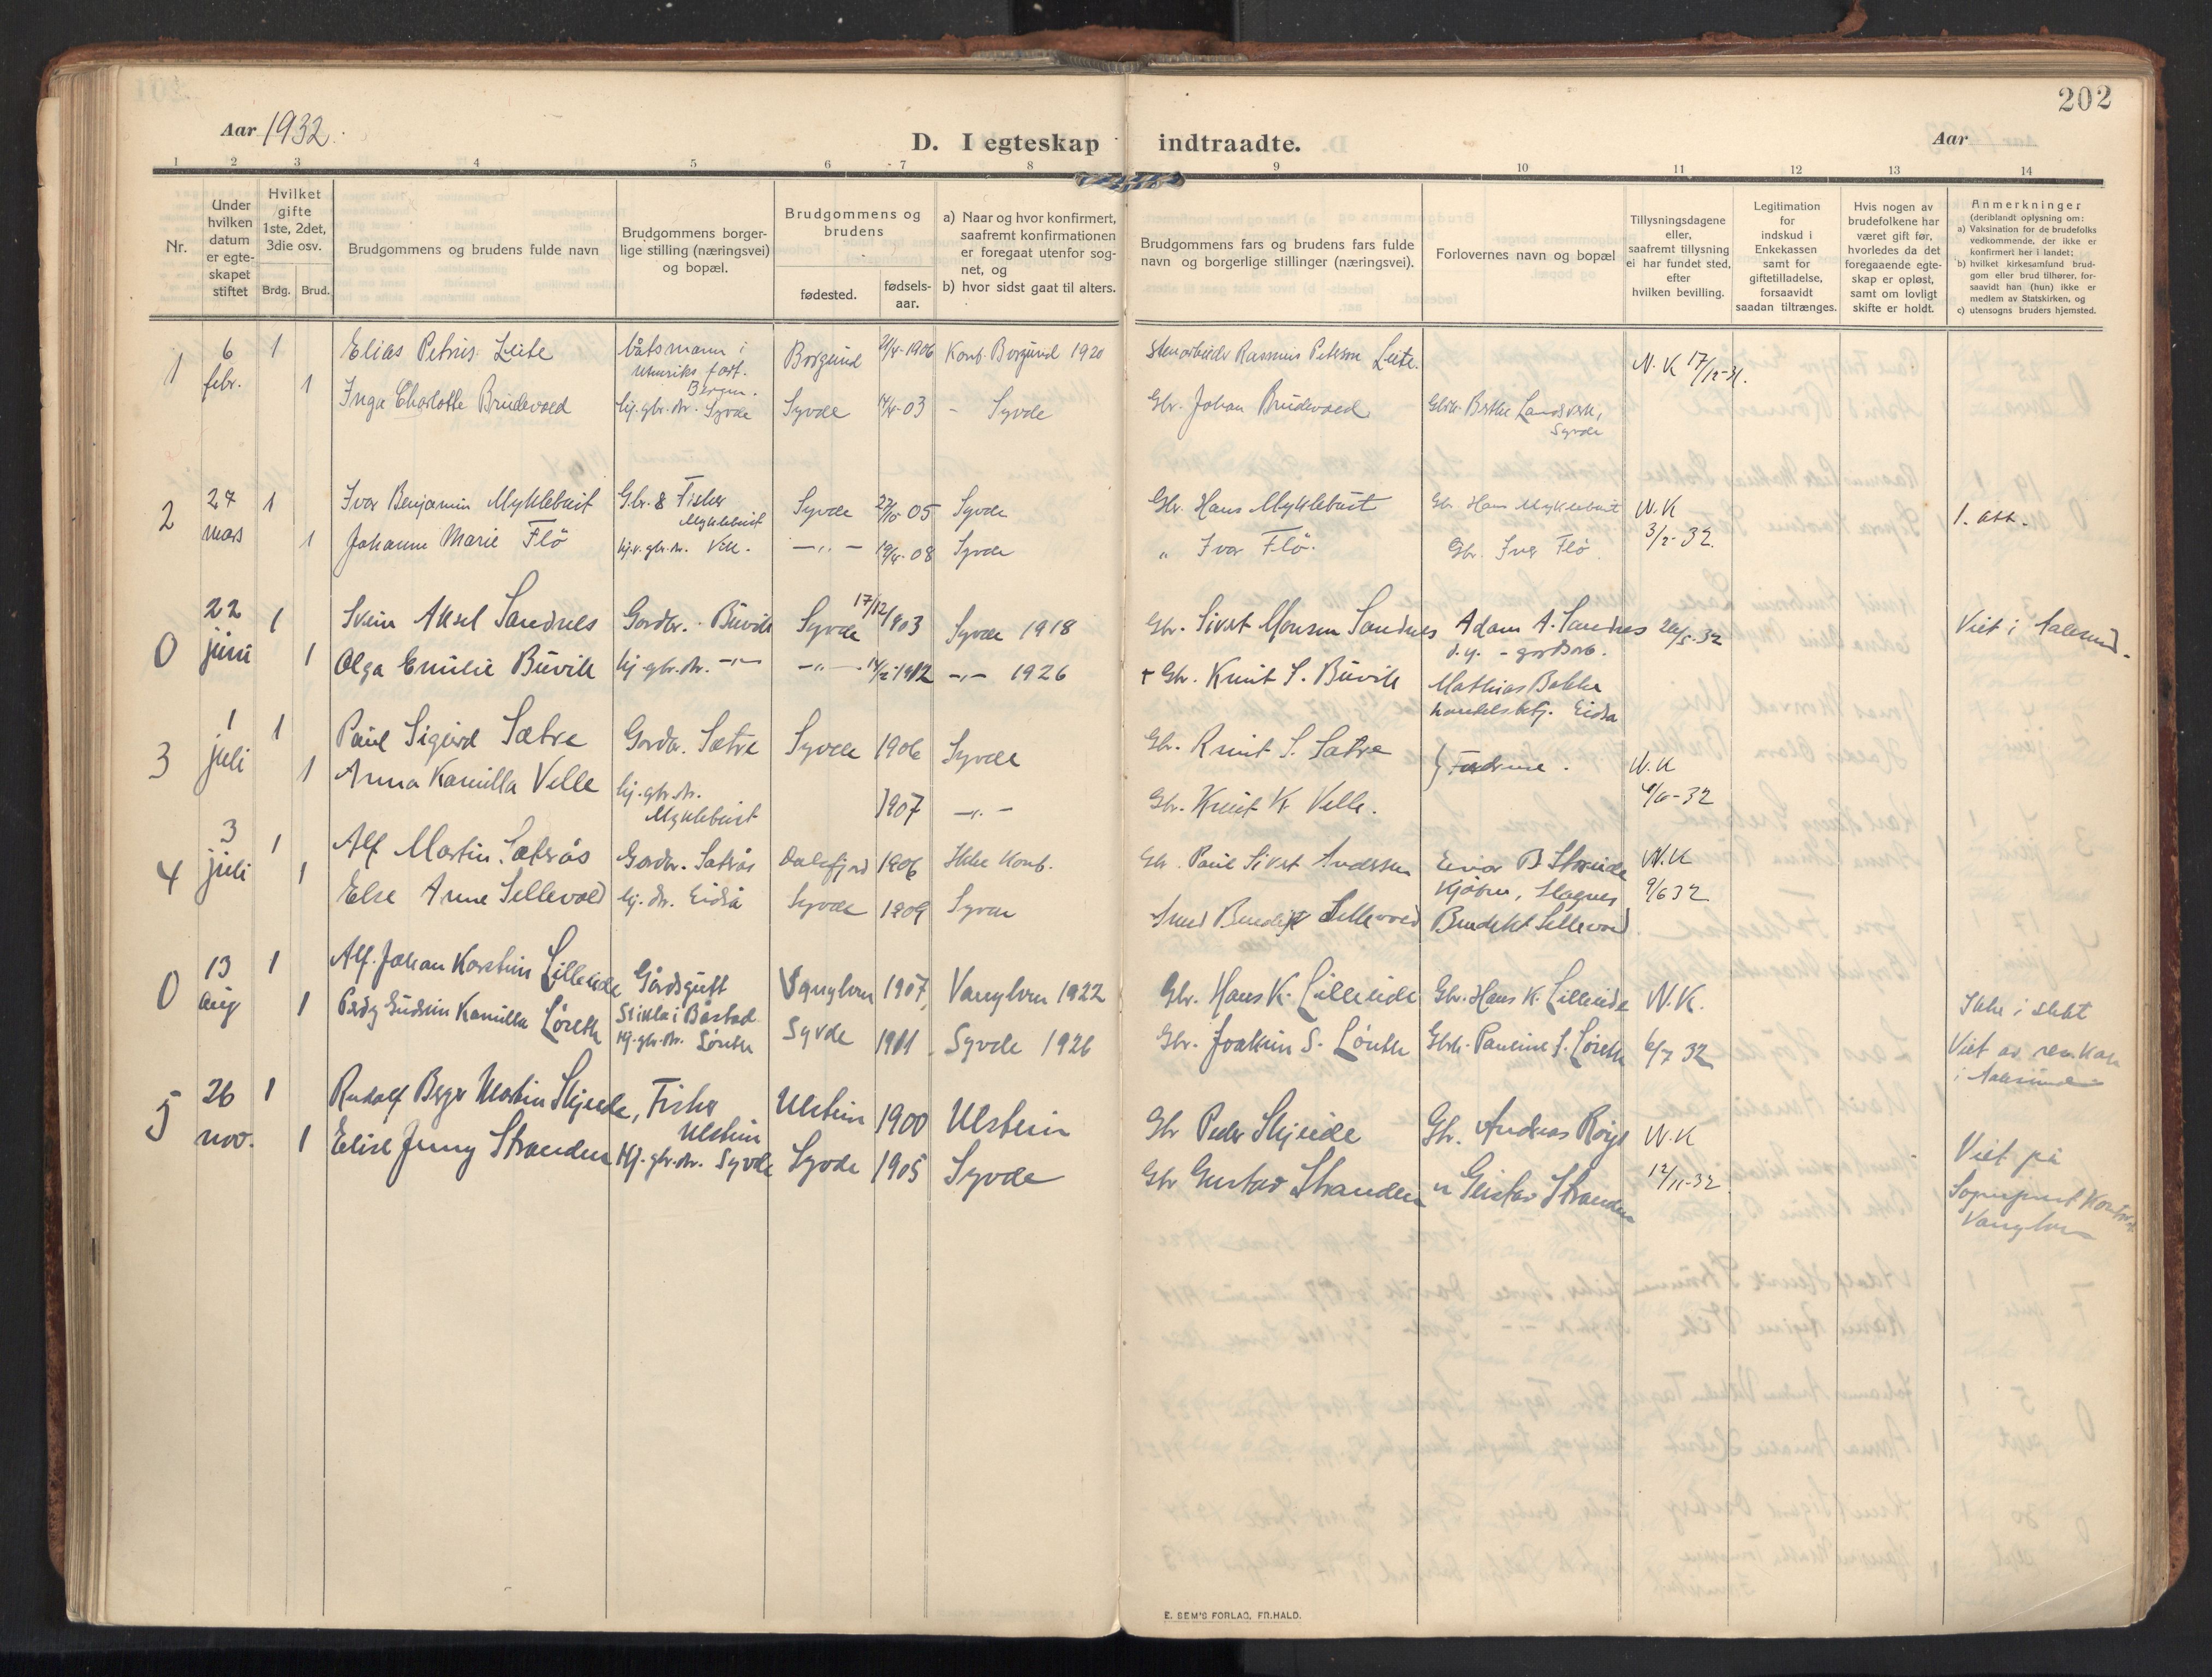 202
Aar 1932.
D. I egteskap indtraadte.
Aar
1 2 3 4 5 6 7 8 9 10 11 12 13 14
Nr.
Under hvilken datum er egteskapet stiftet
Hvilket gifte 1ste, 2det, 3die osv.
Brdg. Brud.
Brudgommens og brudens fulde navn
Brudgommens borger-
lige stilling (næringsvei)
og bopæl.
Brudgommens og
brudens
fødested.
fødsels-
aar.
a) Naar og hvor konfirmert,
saafremt konfirmationen
er foregaat utenfor sog-
net, og
b) hvor sidst gaat til alters.
Brudgommens fars og brudens fars fulde
navn og borgerlige stillinger (næringsvei).
Forlovernes navn og bopæl
Tillysningsdagene
eller,
saafremt tillysning
ei har fundet sted,
efter
hvilken bevilling.
Legitimation
for
indskud i
Enkekassen
samt for
giftetilladelse,
forsaavidt
saadan tiltrænges.
Hvis nogen av
brudefolkene har
været gift før,
hvorledes da det
foregaaende egte-
skap er opløst,
samt om lovligt
skifte er holdt.
Anmerkninger
(deriblandt oplysning om:
a) Vaksination for de brudefolks
vedkommende, der ikke er
konfirmert her i landet;
b) hvilket kirkesamfund brud-
gom eller brud tilhører, for-
saavidt han (hun) ikke er
medlem av Statskirken, og
c) utensogns bruders hjemsted.
1 6 febr. 1 Elias Petrus Leite båtsmann i Bergen. Borgund 1906 Konf. Borgund 1920 Rasmus Leite. N. K 17/12-31.
1 Inga Charlotte Brudevoed hj. gbr. dr. Syvde Syvde 03 - Syvde Gbr. Johan Brudevoed Syvde
2 27 mars 1 Ivar Benjamin Myklebust Gbr. & Fisker Myklebust Syvde 05 Syvde Gbr. Hans Myklebust Gbr. Hans Myklebust N. K 3/2-32. 1. att.
1 Johanne Marie Flö Vik. -„- 08 Syvde „ Ivar Flö. Gbr. Ivar Flö.
0 22 juni 1 Svein Aksel Sandnes Gardbr. Buvik Syvde 17/12 1903 Syvde 1918 Gbr. Sivert Monsen Sandnes Adam A. Sandnes d.y. - 32 Viet i Aalesund.
1 Olga Emilie Buvik hj. gbr. dr. -„- -„- 1912 -„- 1926 + Gbr. Knut S. Buvik Mathias Bakke Eidså
3 1 juli 1 Paul Sigurd Sætre Gardbr. Sætre Syvde 1906 Syvde Gbr. Knut S. Sætre } Fædrene. N. K
1 Anna Kamilla Velle hj. gbr. dr. Myklebust 1907 -„- Gbr. Knut K. Velle. 32
4 3 juli 1 Alf Martin Sæterås Gardbr. Sæterås Dalsfjord 1906 Ikke konf. Gbr. Paul Sivert Andersen N. K 9/6 32
1 Else Anne Sellevold hj. dr. Eidså Syvde 1909 Syvde Smed Benedikt Sellevold Benedikt Sellevold.
0 13 aug 1 Alf Johan Karstein Lilleeide Gårdsgutt Vanylven 1907 Vanylven 1922 Gbr. Hans K. Lilleeide Gbr. Hans K. Lilleeide N. K. Ikke i slekt
1 Gudrun Kamilla Løseth hj. gbr. dr. Syvde 1911 Syvde 1926 Gbr. Joakim S. Løseth Pauline S. Løseth 6/7 32 Viet av i Aalesund
5 26 nov. 1 Rudolf Berger Martin Skjeide, Fisker Ulstein Ulstein 1900 Ulstein Gbr Peder Skjeide Gbr. Andreas N. K Viet på
1 Elise Jenny Stranden Hj. gbr. dr. Syvde Syvde 1905 Syvde Gbr Gustav Stranden „ Gustav Stranden 12/11-32. Vanylven
E. SEM'S FORLAG, FR.HALD.